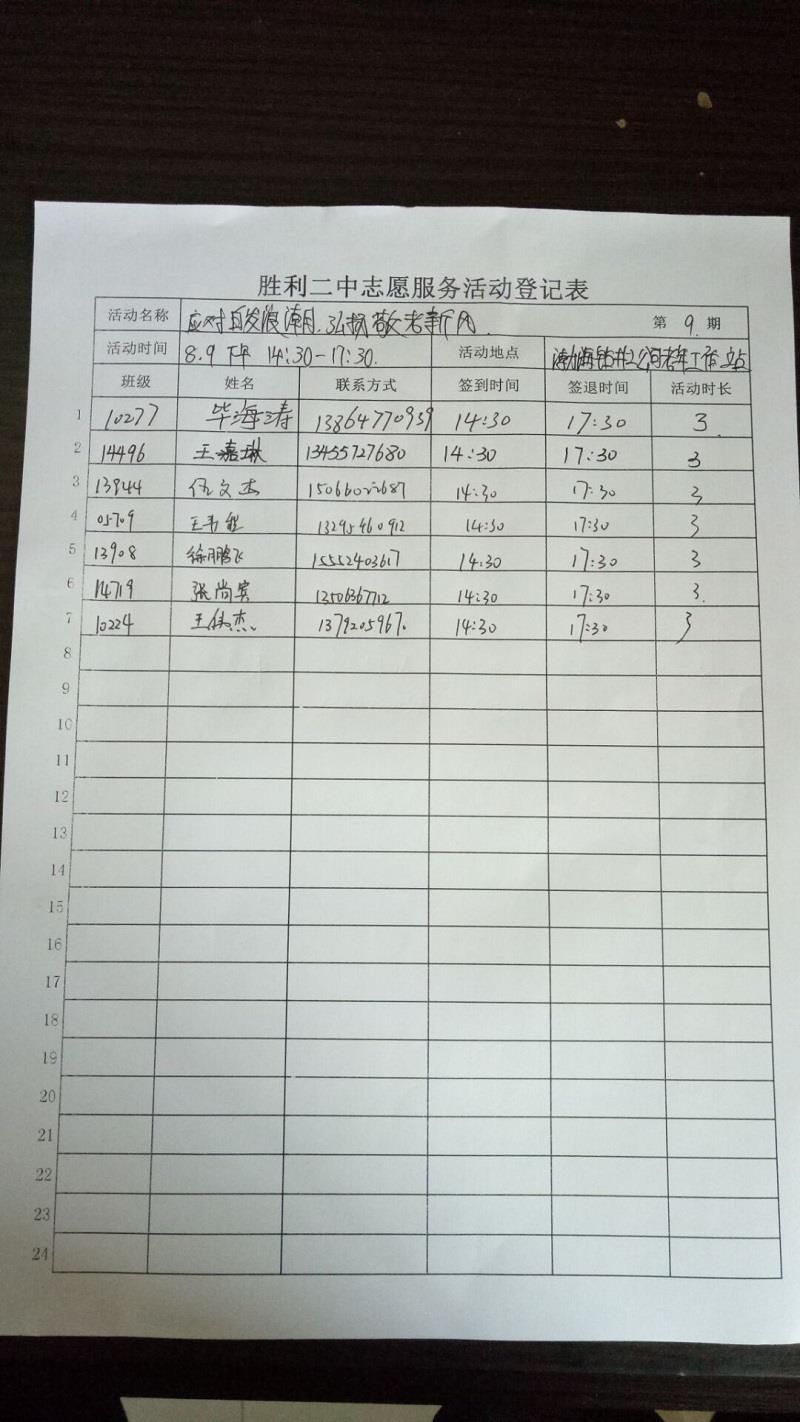 胜利二中志愿服务活动登记表
活动名称 应对白发浪潮.弘扬敬老新风. 第 9. 期
活动时间 8.9 下午 14:30-17:30. 活动地点 渤海钻井公司老年工作站
班级 姓名 联系方式 签到时间 签退时间 活动时长
1 10277 毕海涛 13864770939 14:30 17:30 3.
2 14496 王嘉琳 13455727680 14:30 17:30 3
3 13944 伍文杰 15066022687 14:30 17:30 3
4 05709 13295460912 14:30 17:30 3
5 13908 徐鹏飞 15552403617 14:30 17:30 3
6 14719 张尚宾 13506367712 14:30 17:30 3.
7 10224 王伟杰. 1379205967. 14:30 17:30 3
8
9
10
11
12
13
14
15
16
17
18
19
20
21
22
23
24